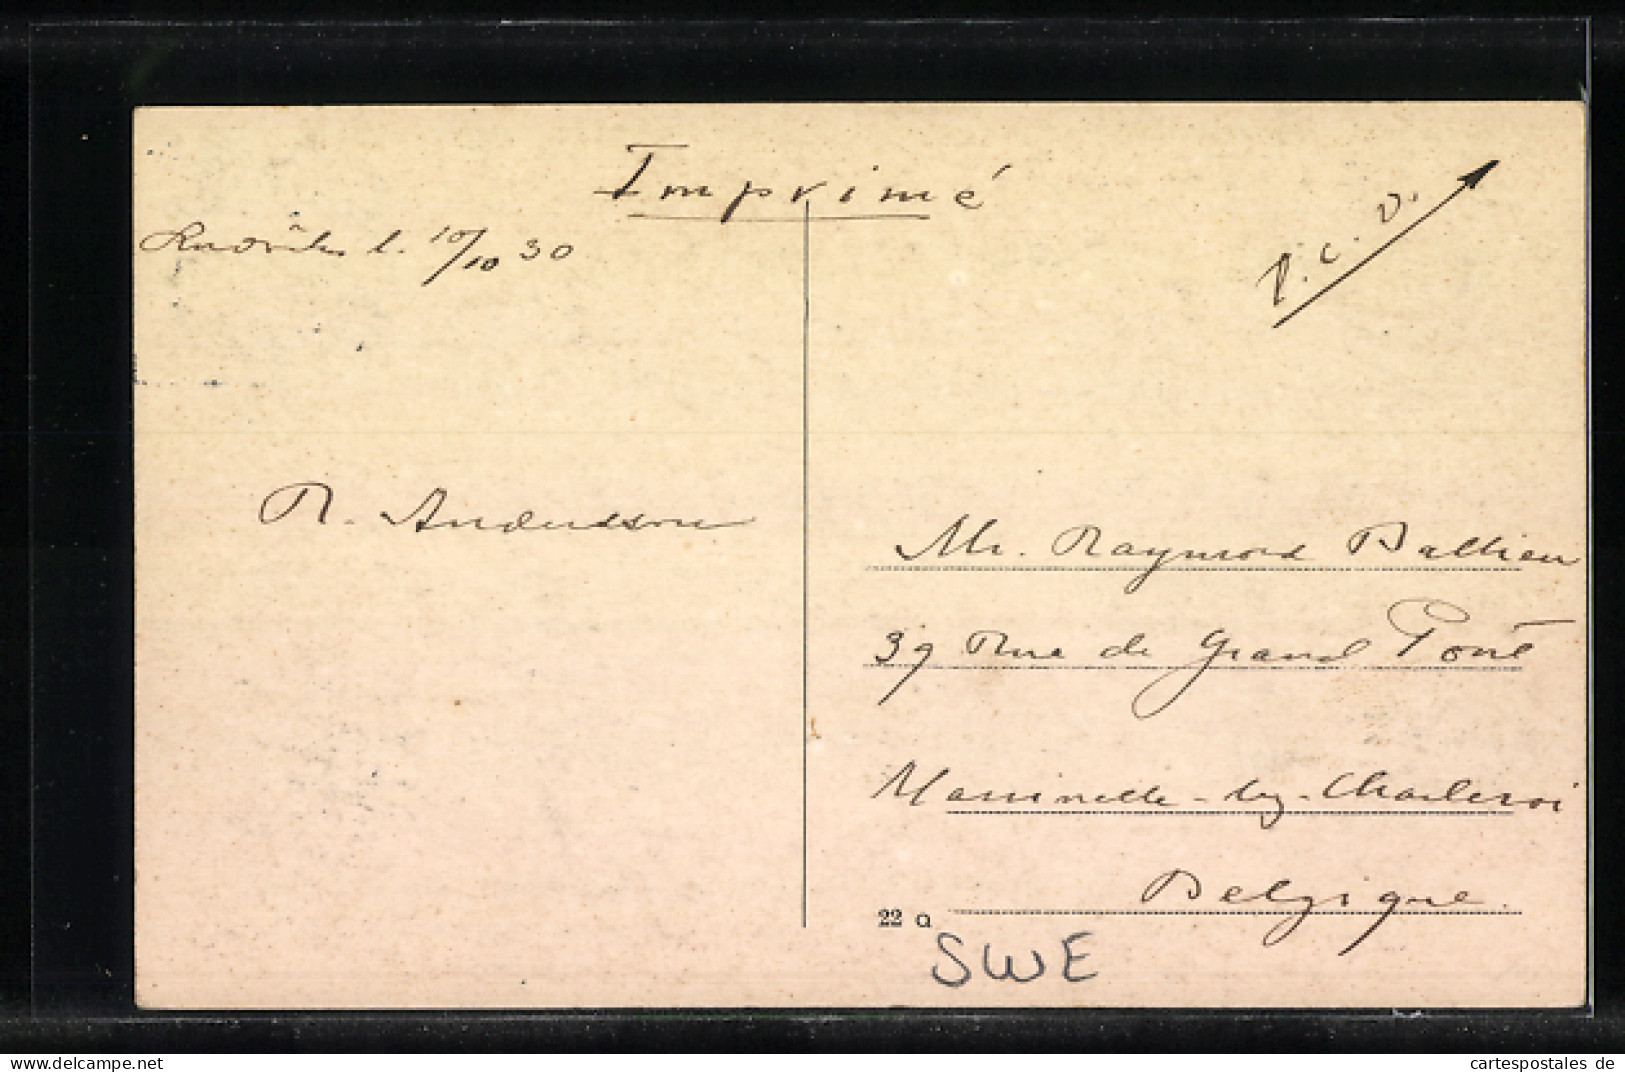 Imprimé
p. c. v.
l. 10/10 30
R. Andersson
Mr. Raymond
39 Rue de Grand
Marcinelle-lez-Charleroi
Belgique.
22 Q
SWE
www.cartespostales.com
cartespostales de